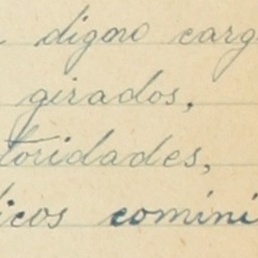 digno carg
girados,
toridades,
icos comini